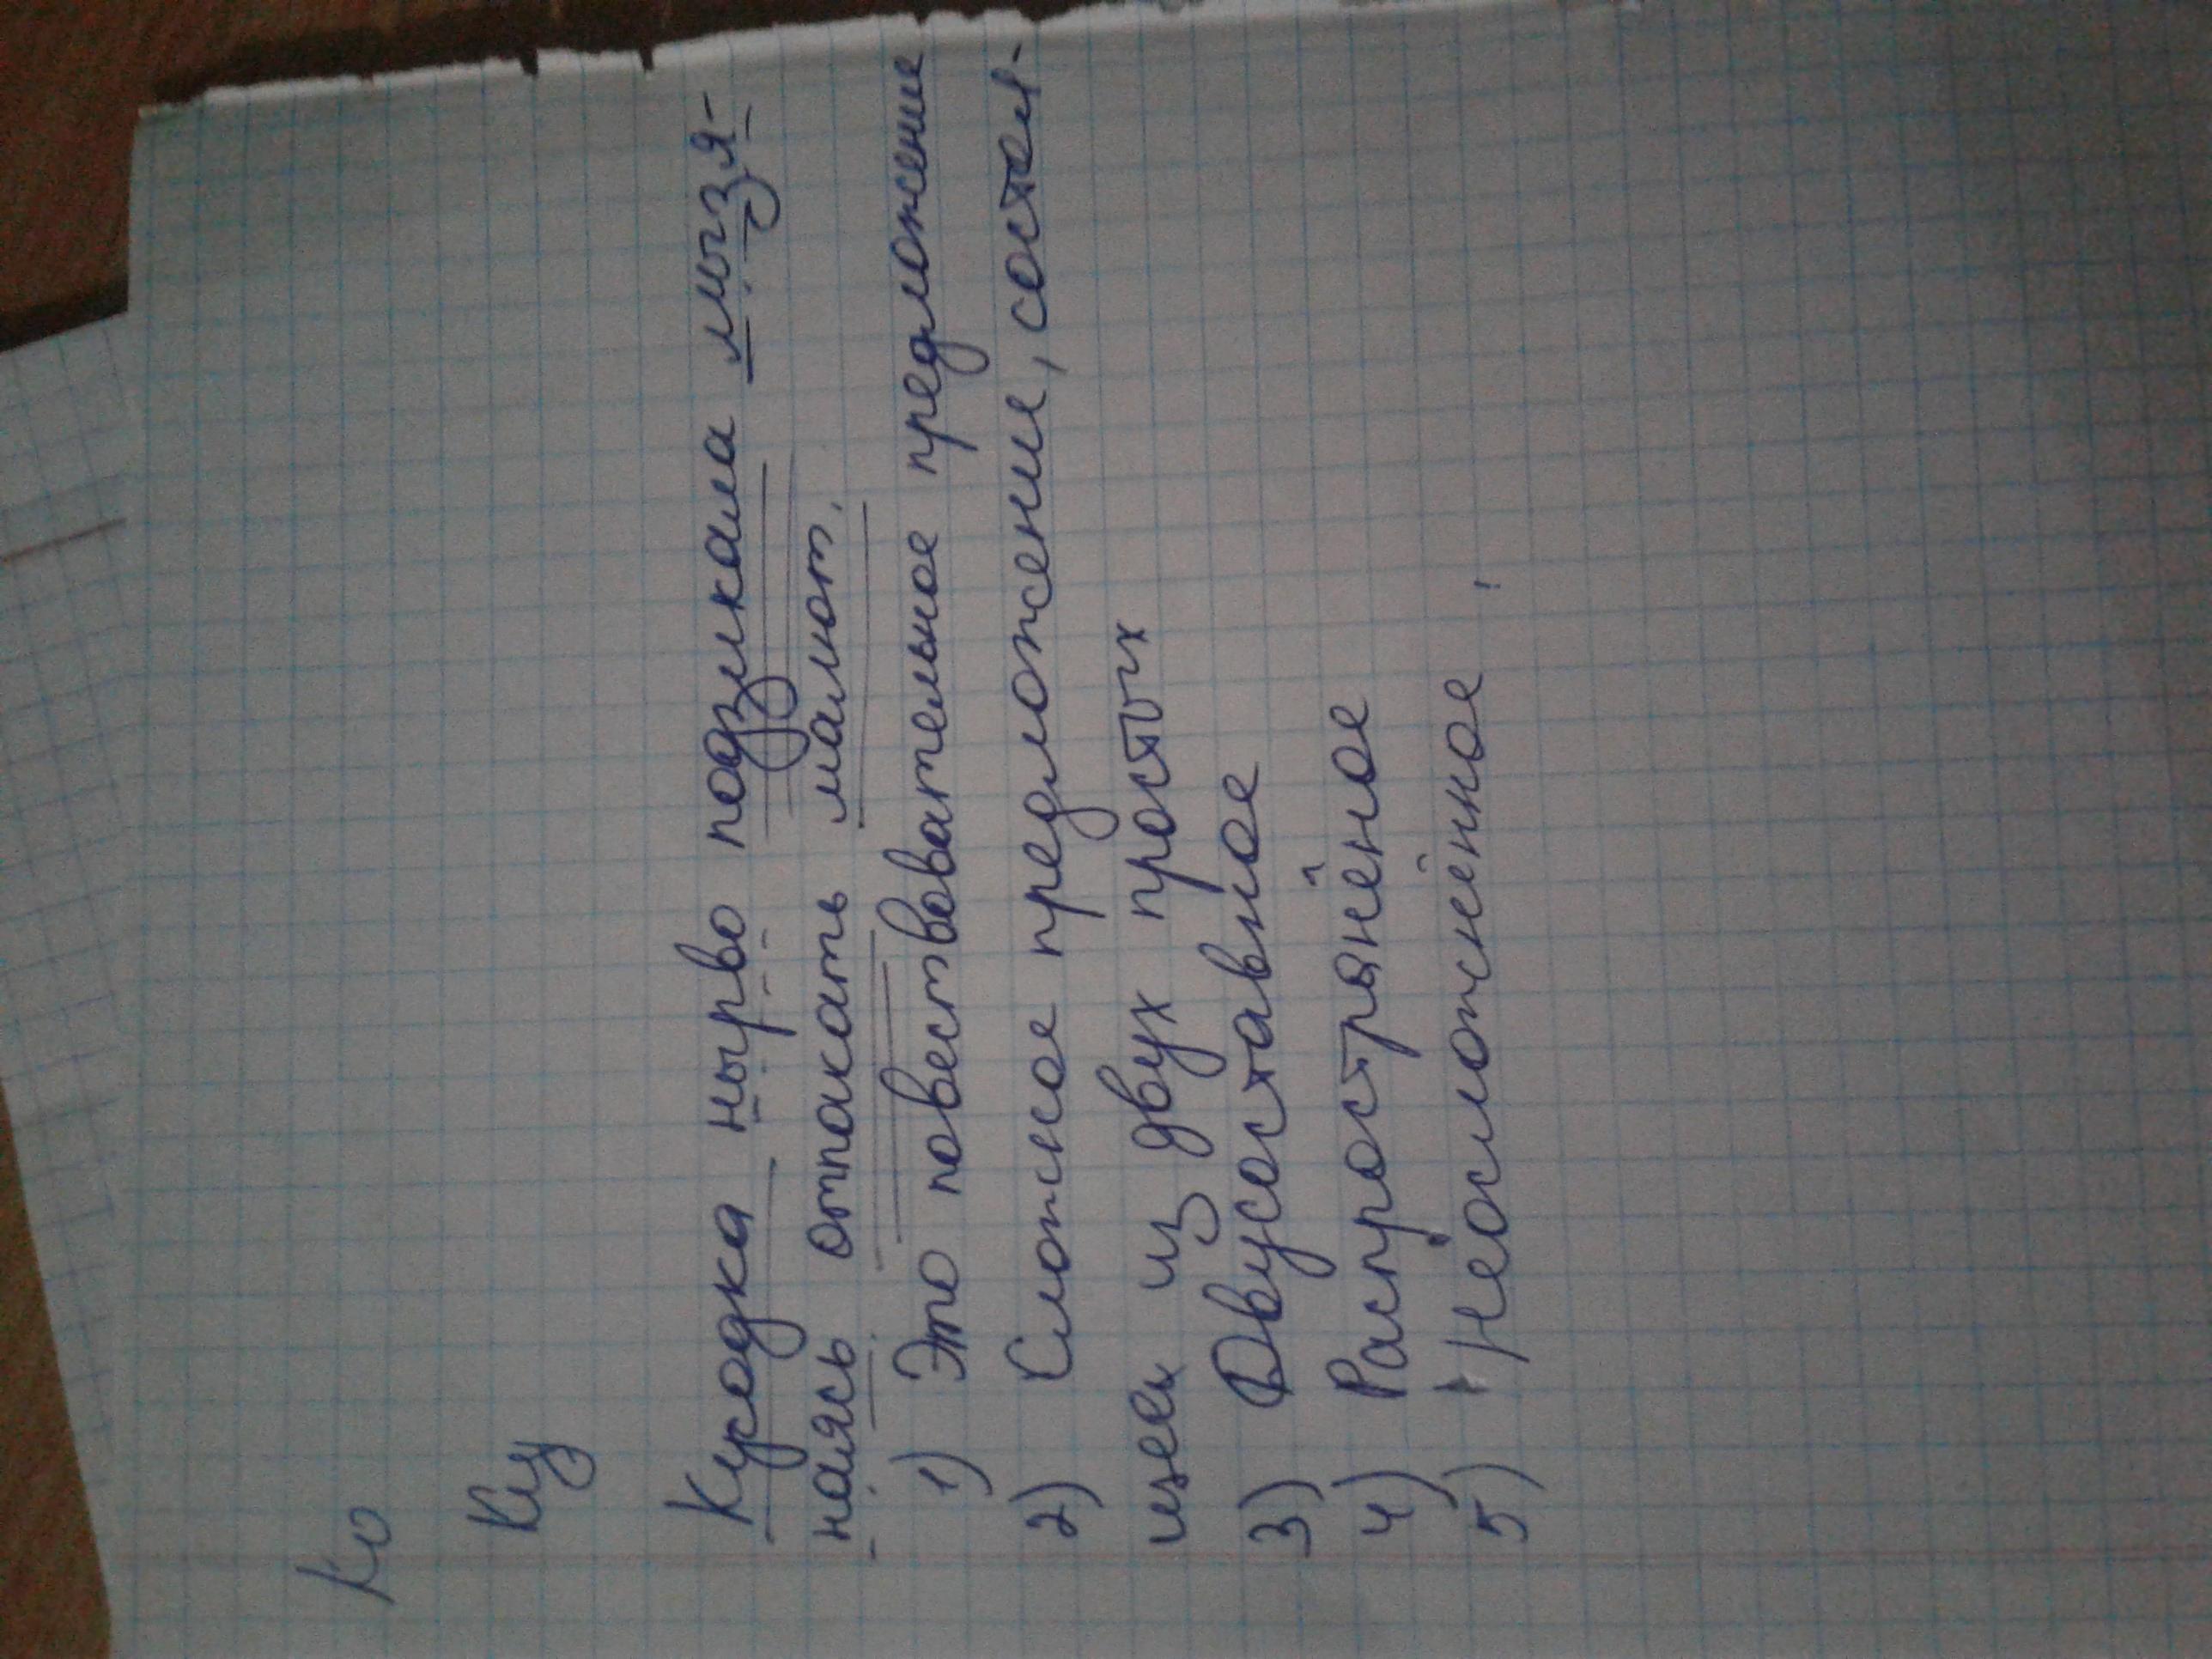 Ко
Ку
Куродка нырво подзикала мызя-
наясь отпакать малиот.
1) Это повествовательное предложение
2) Сложное предложение, состоя-
щеея из двух простых
3) Двусоставное
4) Распрострянёное
5) Неосложнённое